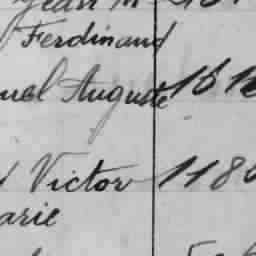 Jean M
Ferdinand
uel Auguste 15 1
Victor 1180
arie